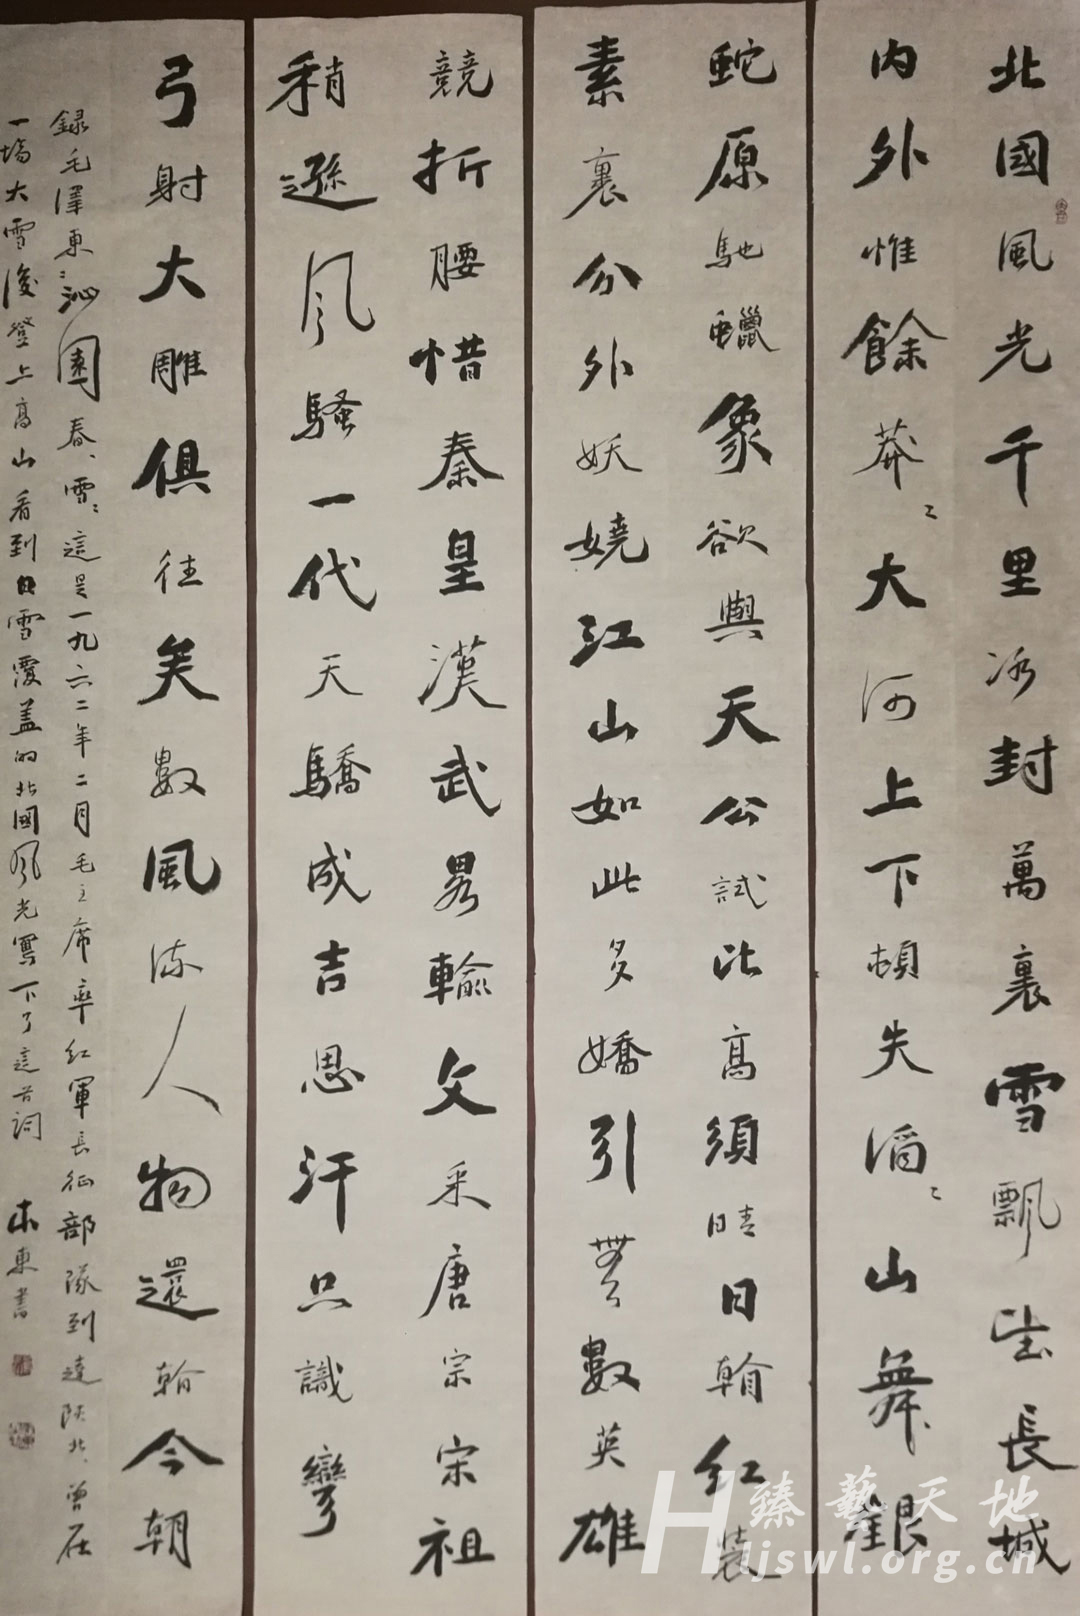 北國風光千里冰封萬裏雪飄望長城
内外惟餘莽〻大河上下頓失滔〻山舞銀
蛇原馳蠟象欲與天公試比高須晴日翰紅裝
素裹分外妖嬈江山如此多嬌引無數英雄
競折腰惜秦皇漢武畧輸文采唐宗宋祖
稍遜風騷一代天驕成吉思汗只識彎
弓射大雕俱往矣數風流人物還翰今朝
録毛澤東：沁園春、雪：這是一九六二年二月毛主席率紅軍長征部隊到達陝北、曾在
一場大雪後登上高山看到白雪覆盖的北國風光寫下了這首詞 東書
臻藝天地
Hljswl.org.cn